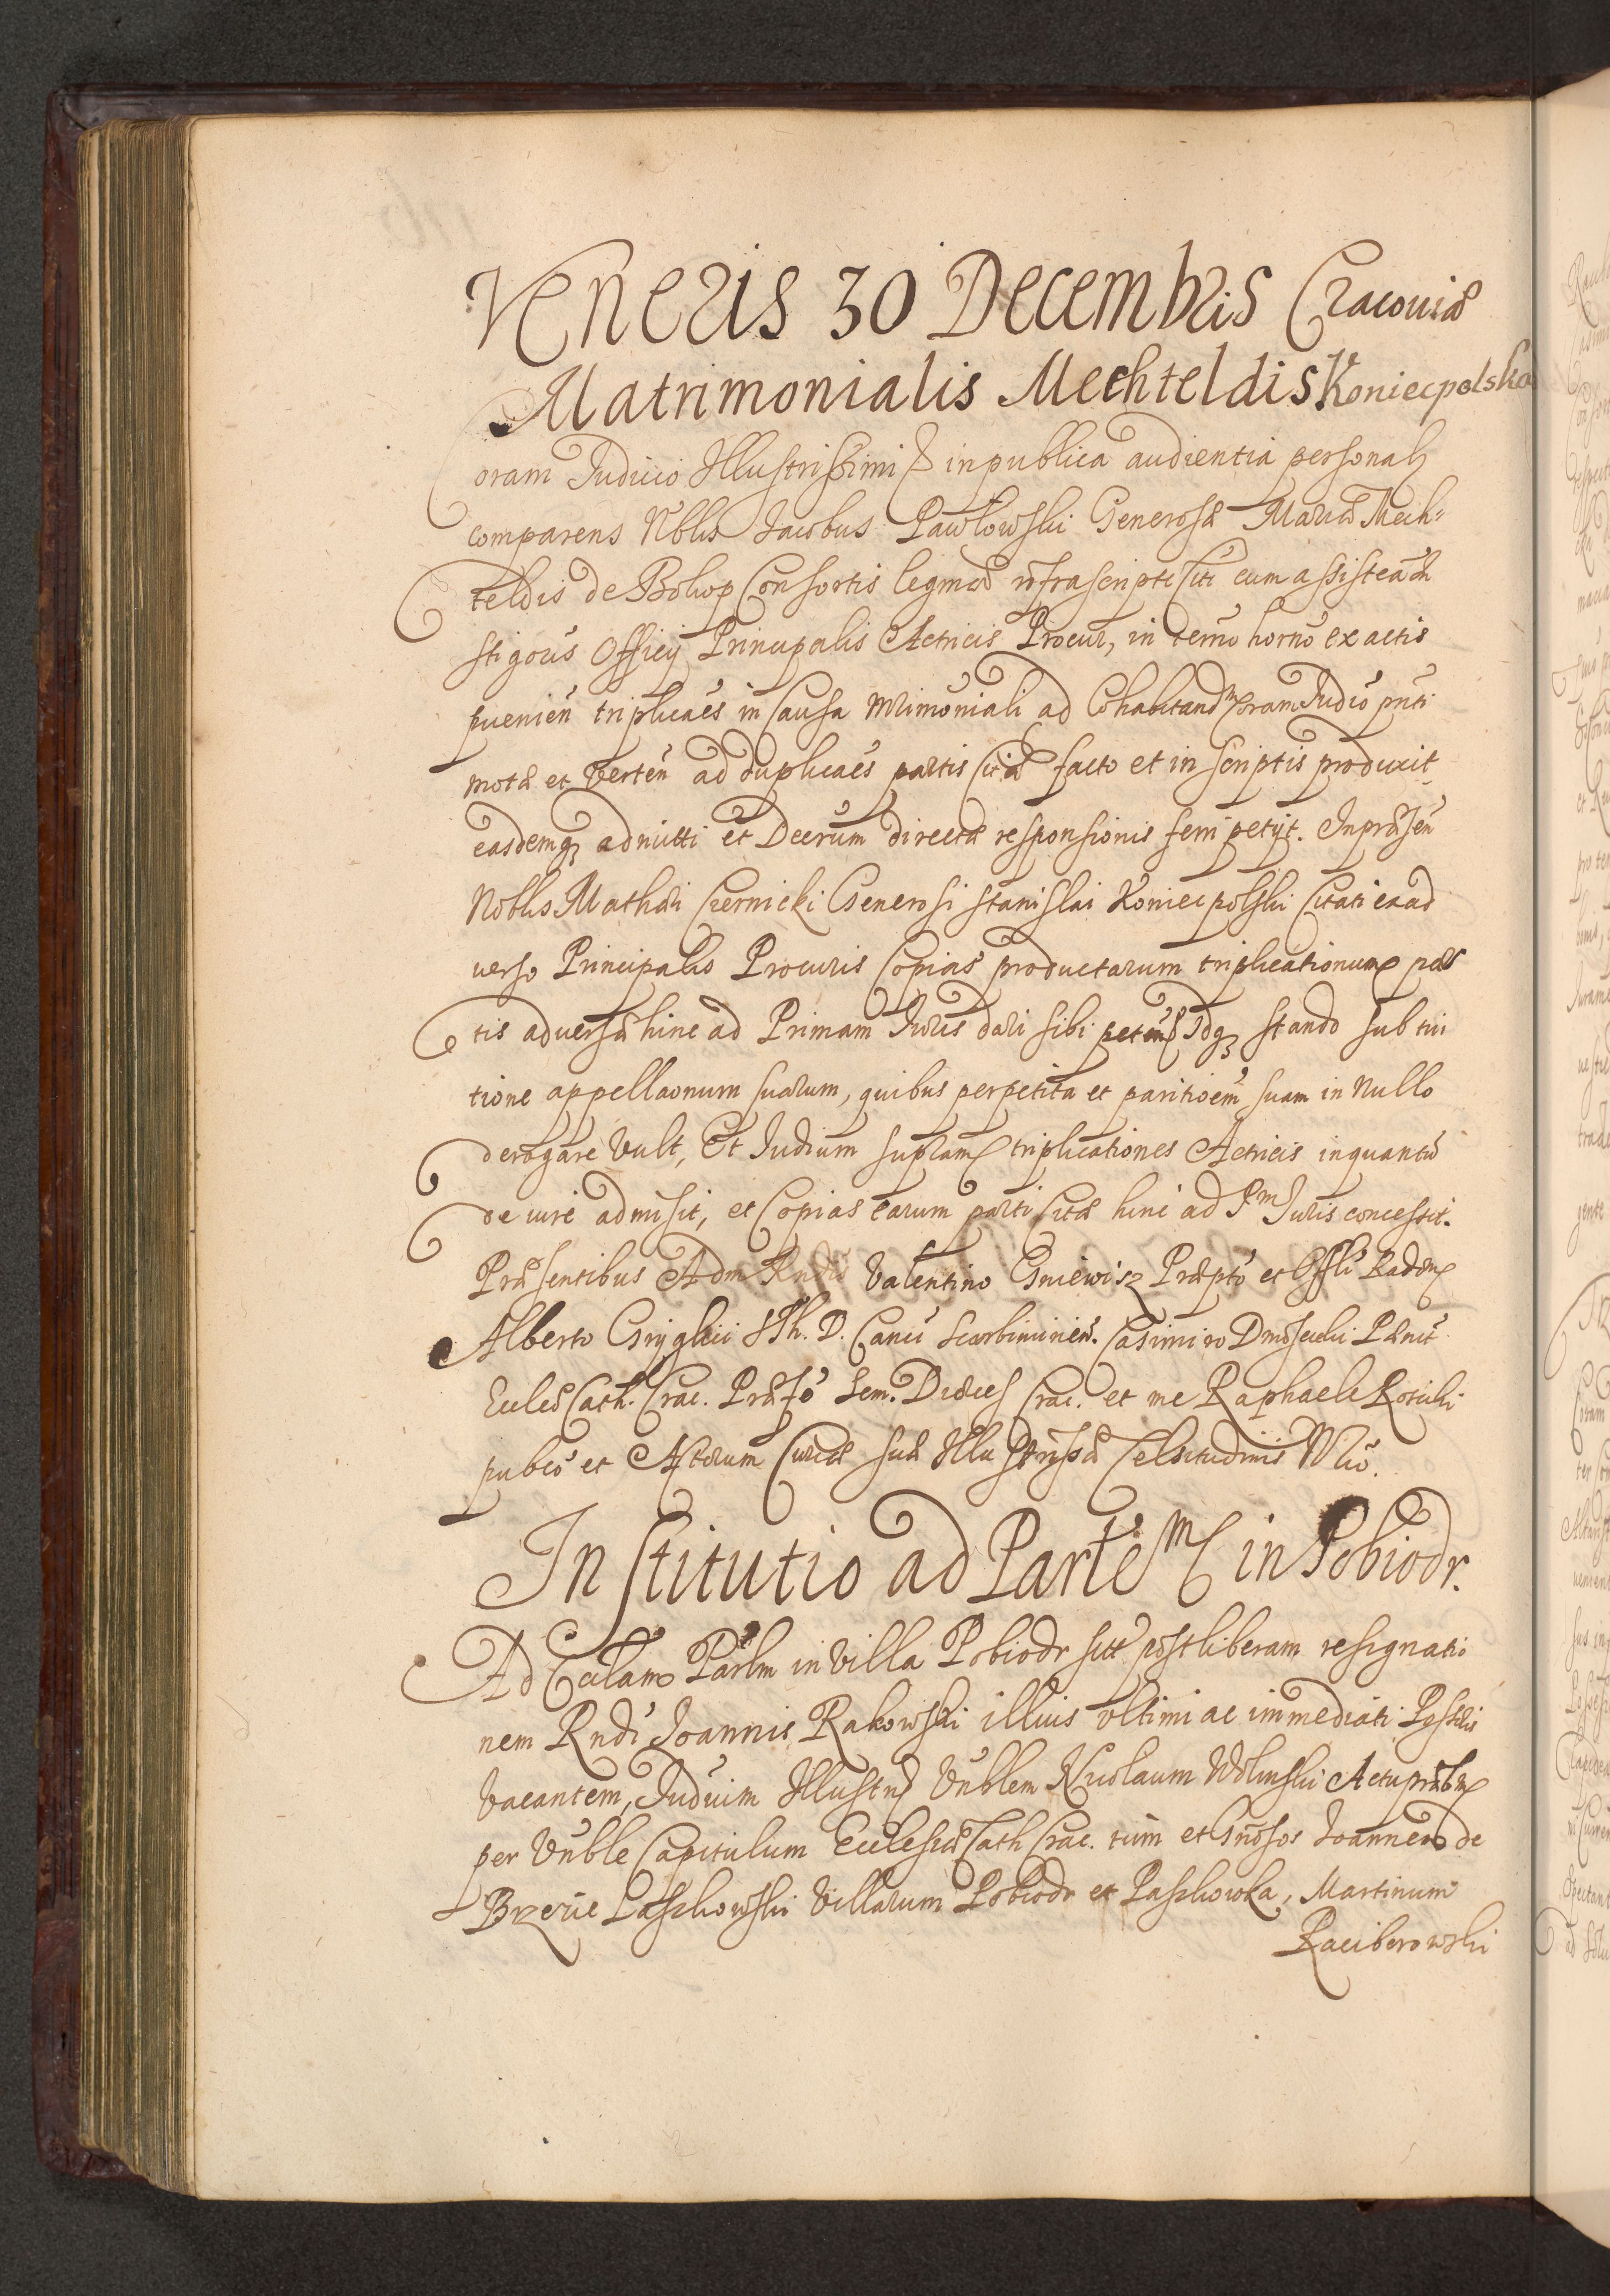 Veneris 30 Decembris Cracoviæ
Matrimonialis Mechteldis Koniecpolska
Coram Iudicio Illustrissimi & in publica audientia personalr
comparens Nblis Iacobus Pawłowski Generosæ Mariæ Mech-
teldis de Bohop Consortis legmæ infrascripti Citi cum assisteã
stigoris Officij Principalis Actricis Procur, in termo horno ex actis
puenień triplicaẽs in Causa Mrimoniali ad Cohabitandm Coram Iudio pñti
mota et Verteñ ad duplicaẽs partis Citæ facto et in scriptis produxit
easdemq admitti et Decrum directæ responsionis ferri petijt. In præsen
Noblis Mathæi Czernicki Generosi Stanislai Koniecpolski Citati ex ad
verso Principalis Procuris Copias productarum triplicationum par
tis adversæ hinc ad Primam Iuris dari sibi peteñ Idq stando sub tui
tione appellaonum suarum, quibus per petita et paritioẽm suam in Nullo
derogare Vult, Et Iudium supram triplicationes Actricis in quantũ
de iure admisit, et Copias earum parti Citæ hinc ad Pm Iuris concessit.
Præsentibus Adm Rndis Valentino Gniewisz Præpto et Offli Radom
Alberto Gryglicii STh. D. Canco Scarbimirieñ. Casimiro Dmosicki Pænit
Eccles Cath. Crac. Præfo Sem. Diæces Crac. et me Raphaele Rosicki
publco et Actorum Curiæ suæ Illustrissæ Celsitudinis Nrio.
Institutio ad Partem in Pobiodr.
Ad Eculam Parlm in Villa Pobiodr sitt post liberam resignatio
nem Rndi Joannis Rakowski illius ultimi ac immediati Pssris
Vacantem, Iudium Illustris Vnblem Nicolaum Wolinski Actuprãbm
per Vnble Capitulum Ecclesiæ Cath Crac. tum et Gnõsos Joannem de
Brzezie Laszkowski Villarum Pobiodr et Paszkowka, Martinum
Raciborowski